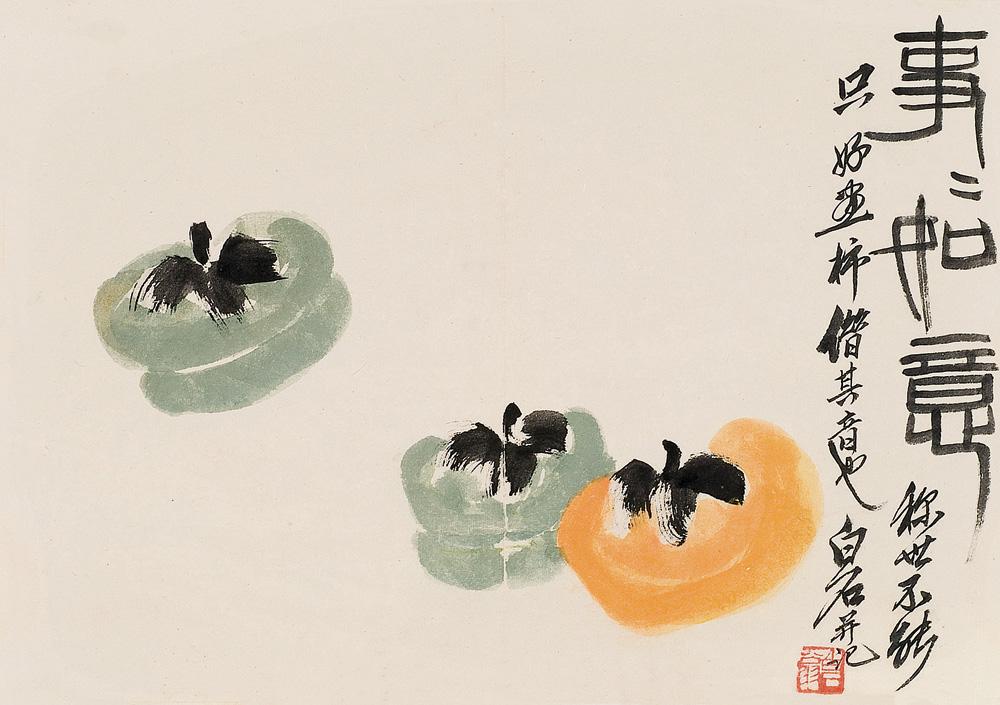 事〻如意
称世不能
只好画柿借其音也 白石并记